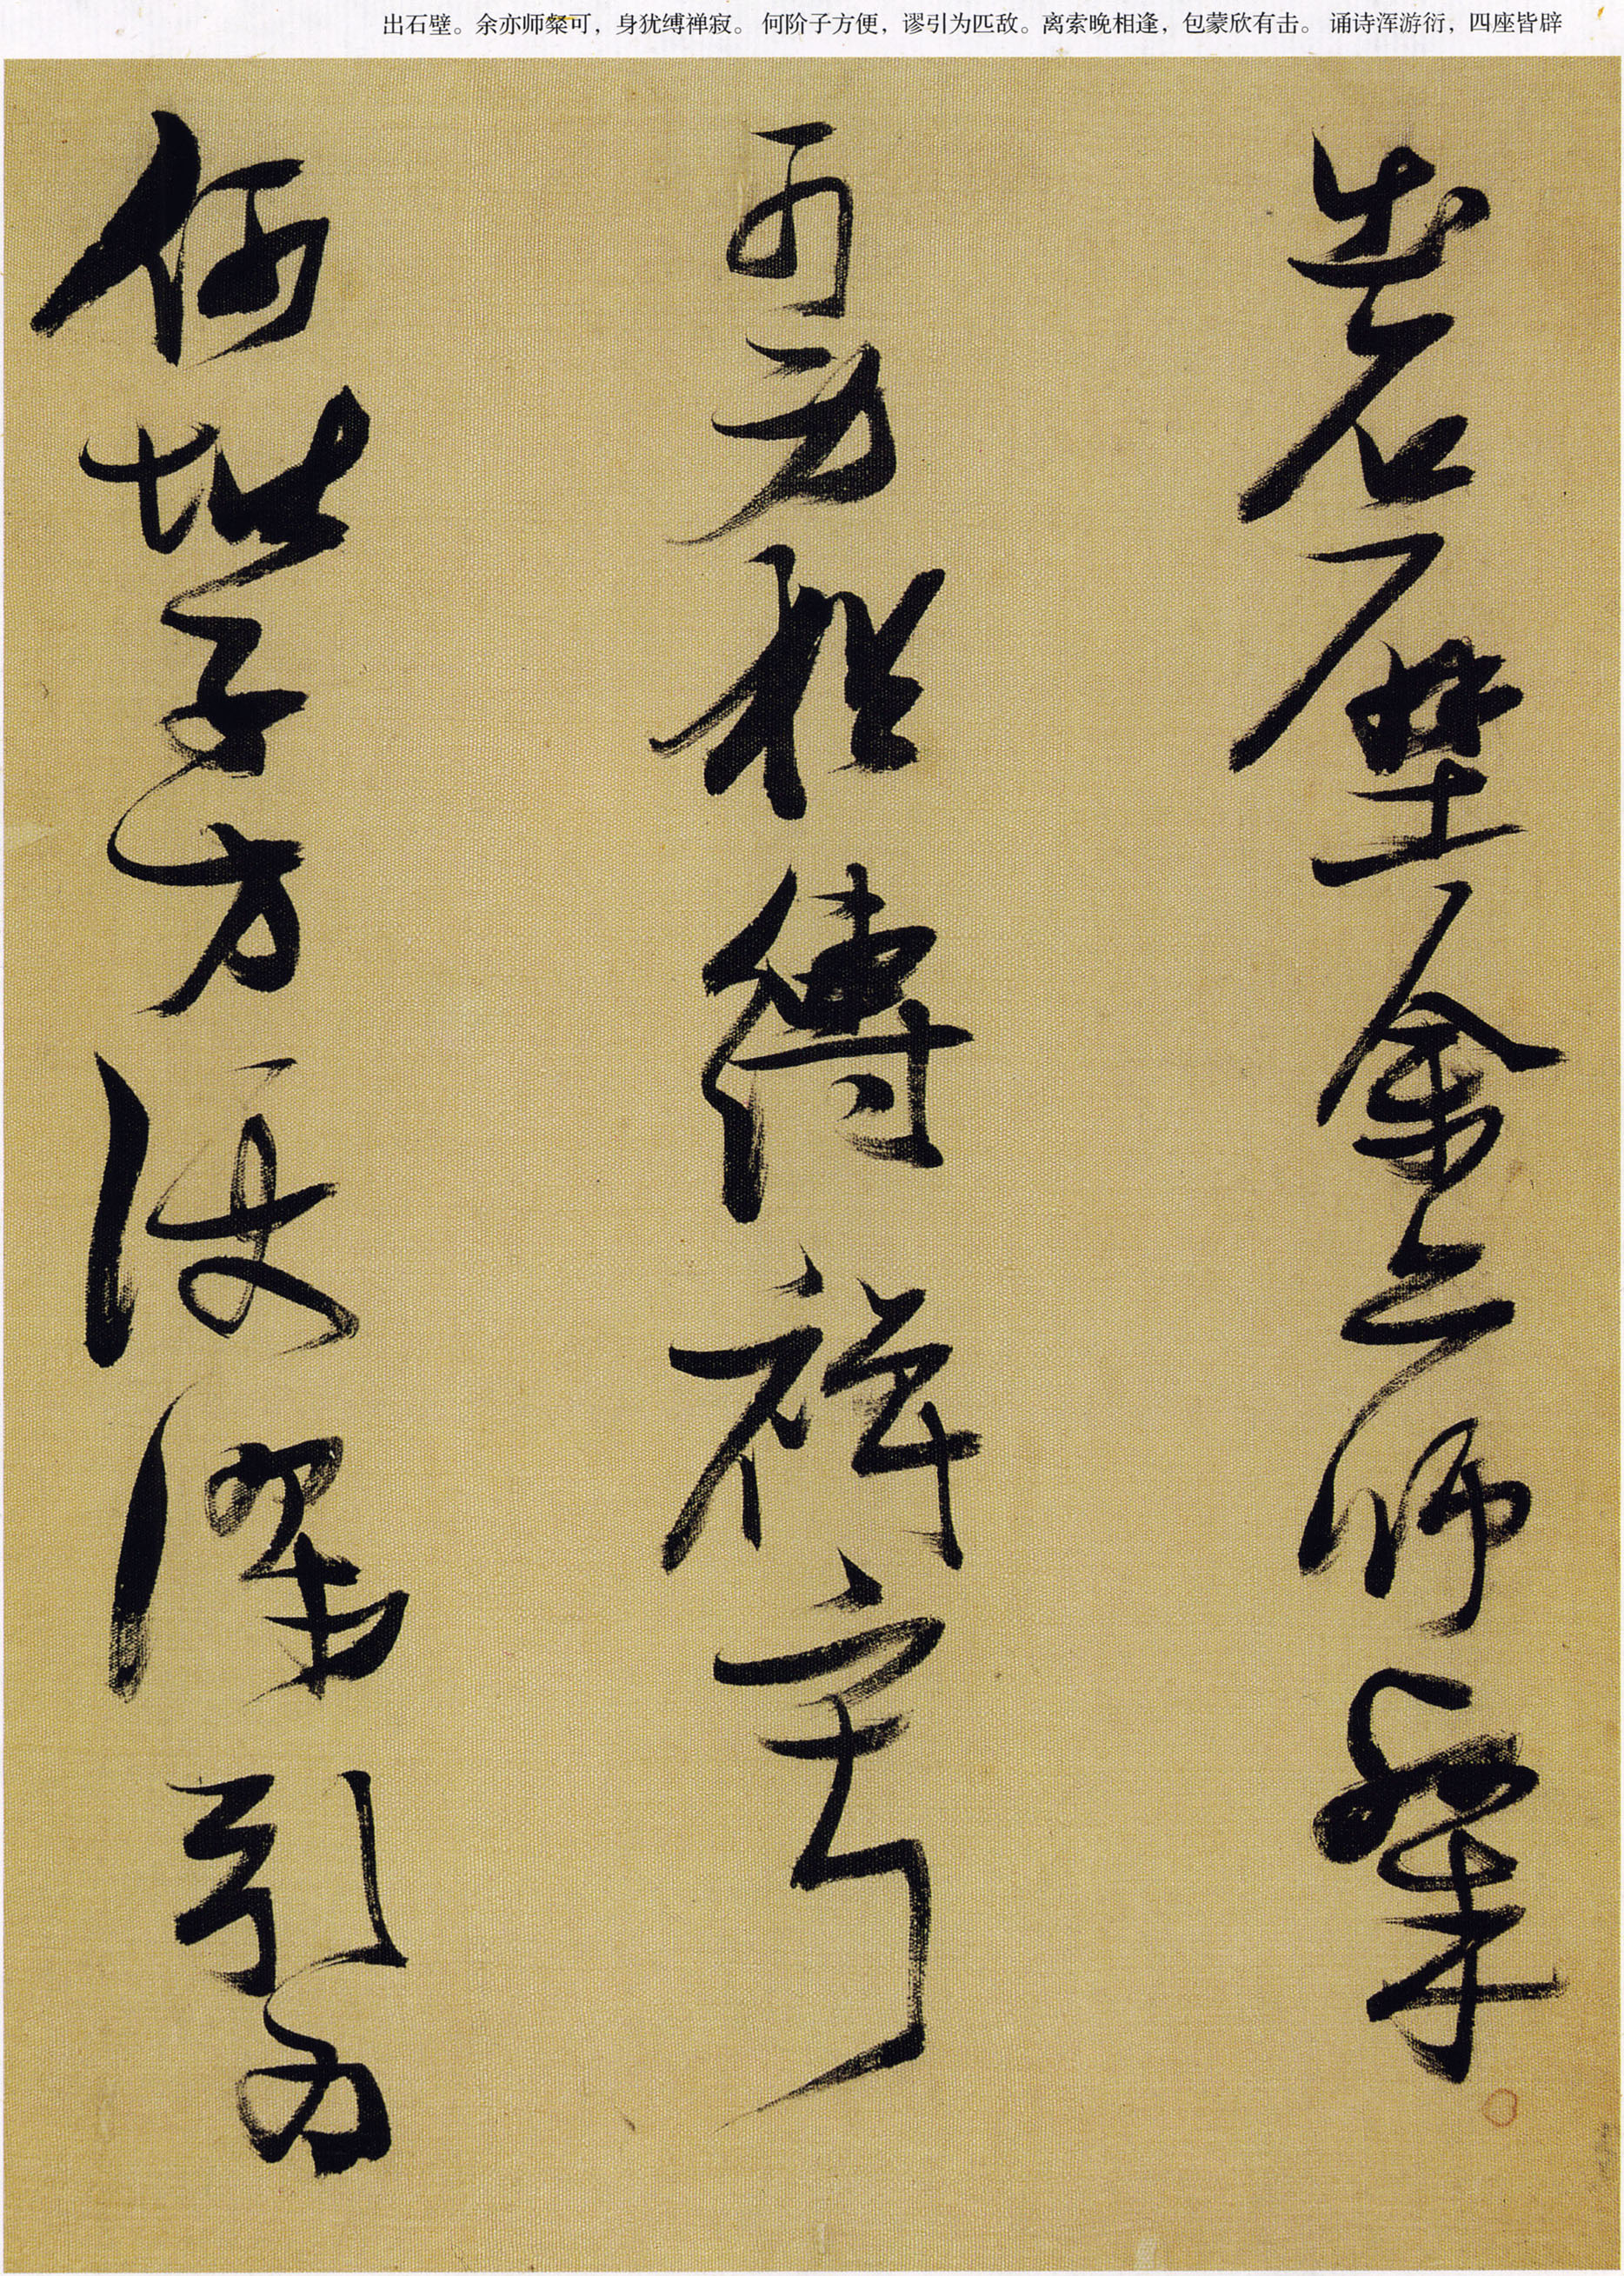 出石壁。余亦师粲可，身犹缚禅寂。何阶子方便，谬引为匹敌。离索晚相逢，包蒙欣有击。诵诗浑游衍，四座皆辟
出石壁余亦師粲
可身猶縛禪寂
何階子方便謬引為